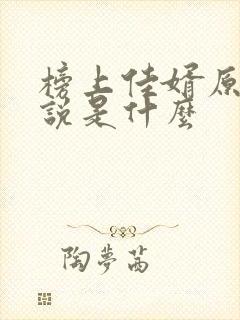 榜上佳婿原
說是什麼
陶夢茜